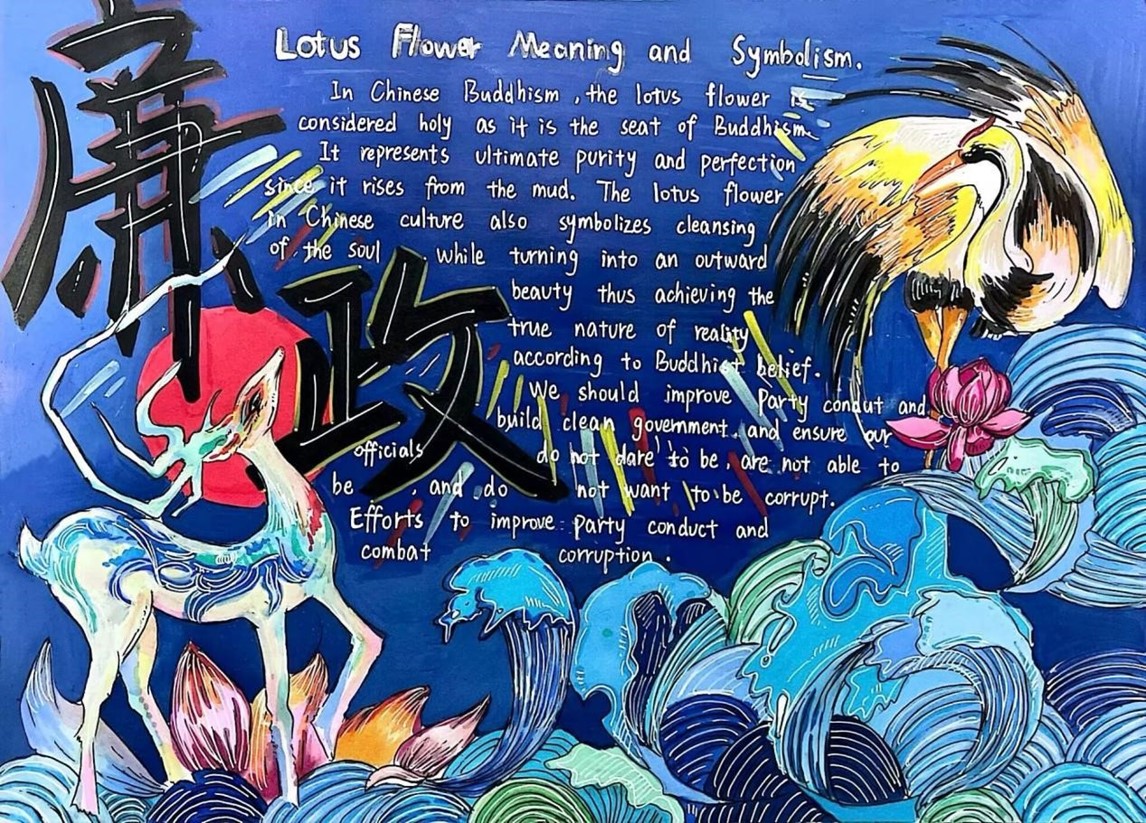 廉政
Lotus Flower Meaning and Symbolism.
In Chinese Buddhism, the lotus flower is
considered holy as it is the seat of Buddhism
It represents ultimate purity and perfection
since it rises from the mud. The lotus flower
in Chinese culture also symbolizes cleansing
of the soul while turning into an outward
beauty thus achieving the
true nature of reality
according to Buddhist belief.
We should improve Party conduct and
build clean government, and ensure our
officials do not dare to be, are not able to
be , and do not want to be corrupt.
Efforts to improve party conduct and
combat corruption.